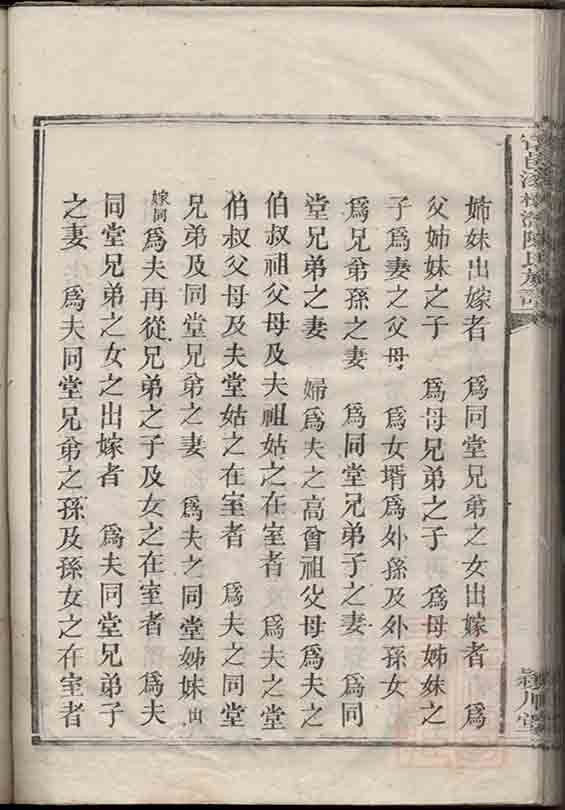 姊妹出嫁者　爲同堂兄弟之女出嫁者　爲
父姊妹之子　爲母兄弟之子　爲母姊妹之
子爲妻之父母　爲女壻爲外孫及外孫女
爲兄弟孫之妻　爲同堂兄弟子之妻　爲同
堂兄弟之妻　婦爲夫之高曾祖父母爲夫之
伯叔祖父母及夫祖姑之在室者　爲夫之堂
伯叔父母及夫堂姑之在室者　爲夫之同堂
兄弟及同堂兄弟之妻　爲夫之同堂姊妹出
嫁同爲夫再從兄弟之子及女之在室者　爲夫
同堂兄弟之女之出嫁者　爲夫同堂兄弟子
之妻　爲夫同堂兄弟之孫及孫女之在室者
潁川堂